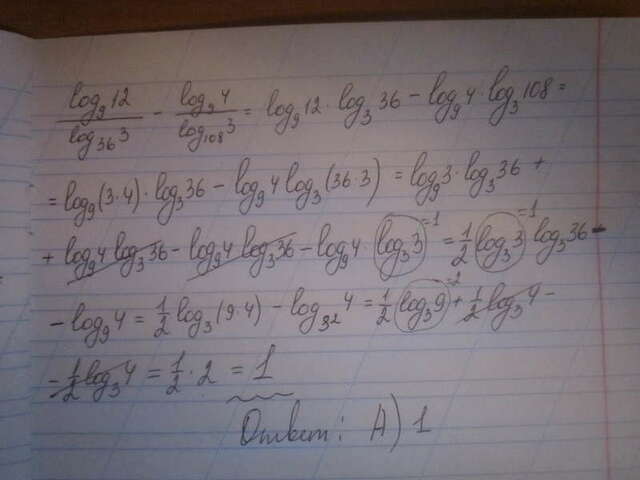 log₉12/log₃₆3 - log₉4/log₁₀₈3 = log₉12 · log₃36 - log₉4 · log₃108 =
= log₉(3·4) · log₃36 - log₉4 log₃(36·3) = log₉3 · log₃36 +
+ log₉4 log₃36 - log₉4 log₃36 - log₉4 · log₃3 =1 = ½ log₃3 =1 log₃36 -
- log₉4 = ½ log₃(9·4) - log₃²4 = ½ log₃9 =2 + ½ log₃4 -
- ½ log₃4 = ½ · 2 = 1
Ответ: А) 1